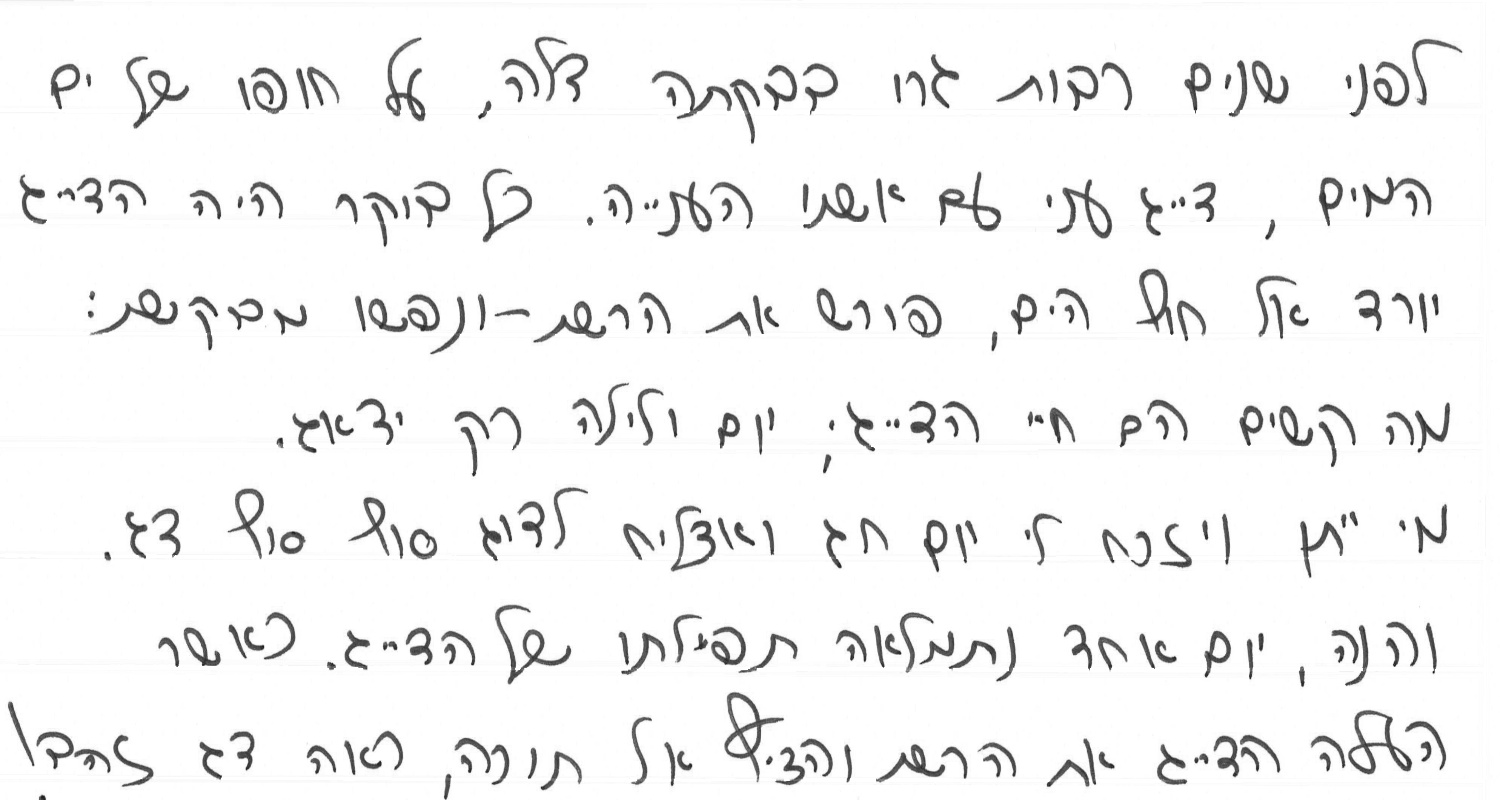 לפני שנים רבות גרו בבקתה דלה, על חופו של ים
המים, דייג עני עם אשתו הענייה. כל בוקר היה הדייג
יורד אל חוף הים, פורש את הרשת-ונפשו מבקשת:
מה קשים הם חיי הדייג; יום ולילה רק ידאג.
מי ייתן ויזכח לי יום חג ואצליח לדוג סוף סוף דג.
והנה, יום אחד נתמלאה תפילתו של הדייג. כאשר
העלה הדייג את הרשת והציף אל תוכה, ראה דג זהב!